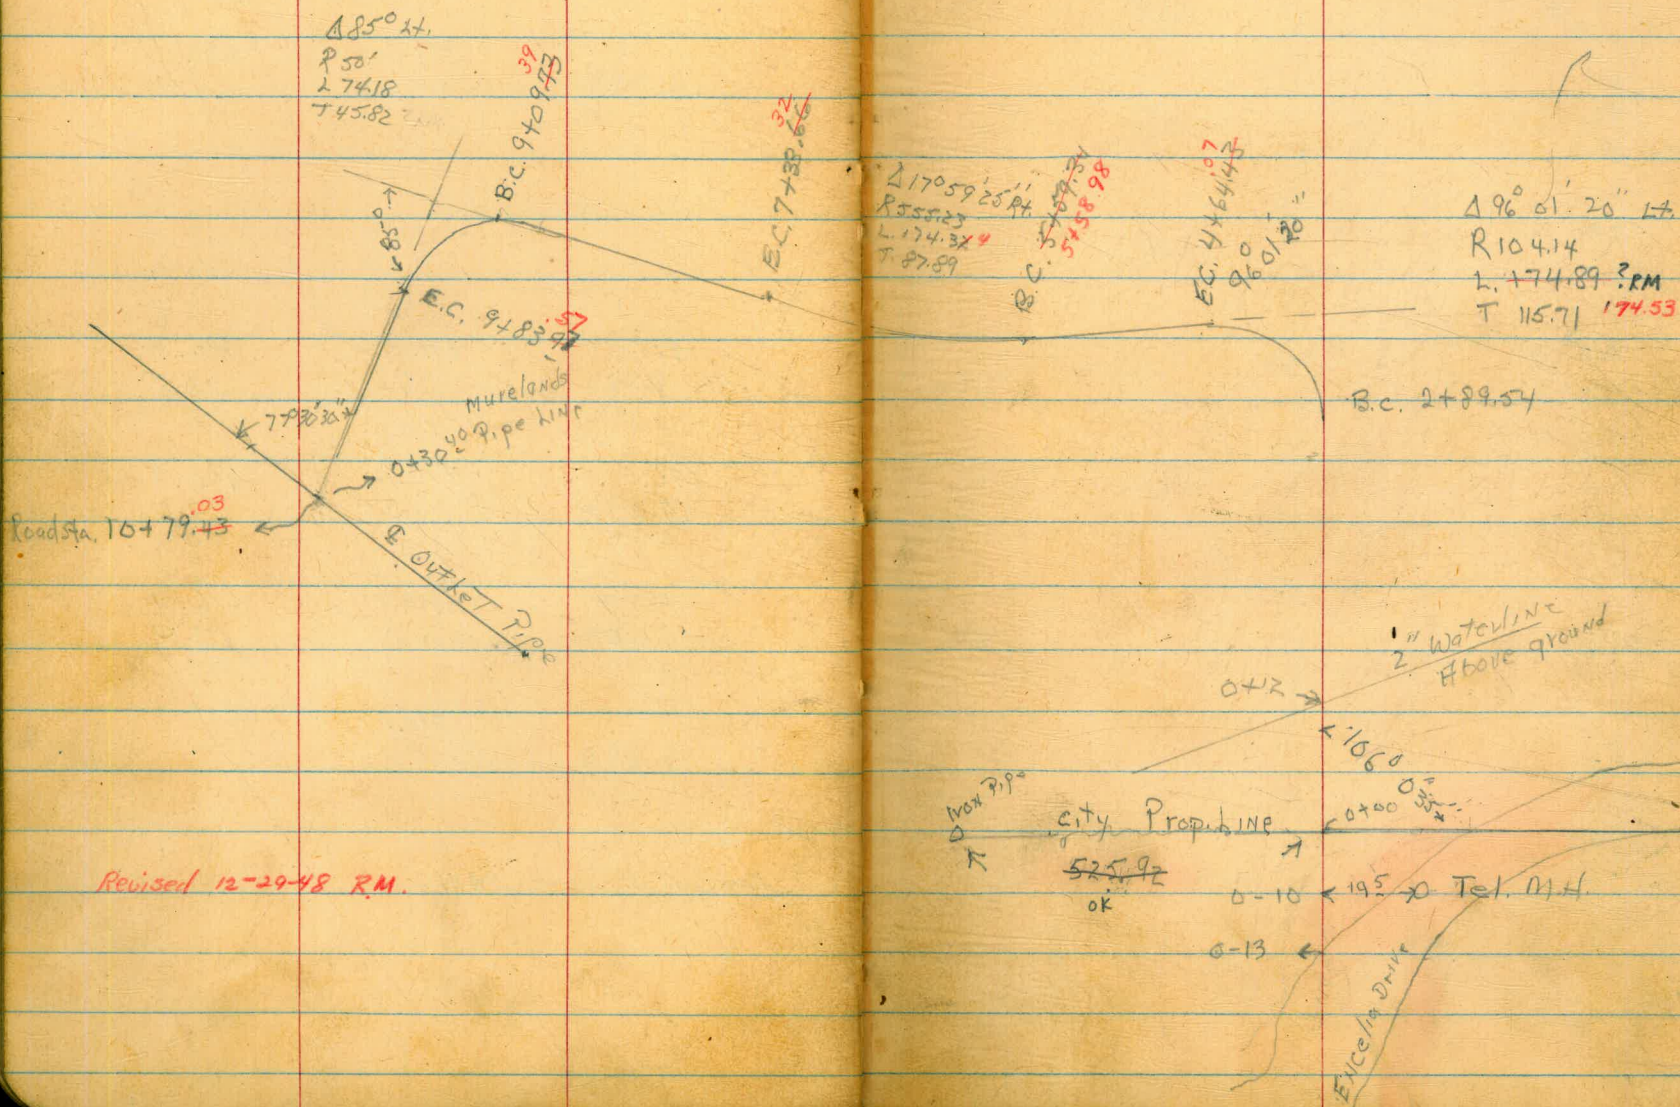 Δ 85° Lt.
R 50'
L 74.18
T 45.82
B.C. 9+09.73
39
E.C. 7+33.66
32
85°
E.C. 9+83.97
.57
Murelands
Pipe Line
0+30 40
77°30'30"
Roadsta. 10+79.43
.03
℄ Outlet Pipe
Revised 12-29-48 R.M.
Δ 17°59'25" Rt.
R 555.23
L. 174.32 4
T. 87.89
B.C. 5+59.34
5+58.98
E.C. 4+64.43
.07
96° 01' 20"
Δ 96° 01' 20" Lt.
R 104.14
L. 174.89 ? RM
T 115.71 174.53
B.C. 2+89.54
2" Waterline
Above ground
0+12
106° 0'
0+00
Iron Pipe
City Prop. Line
525.92
OK
0-10 19 5 Tel. M.H.
0-13
Encelia Drive